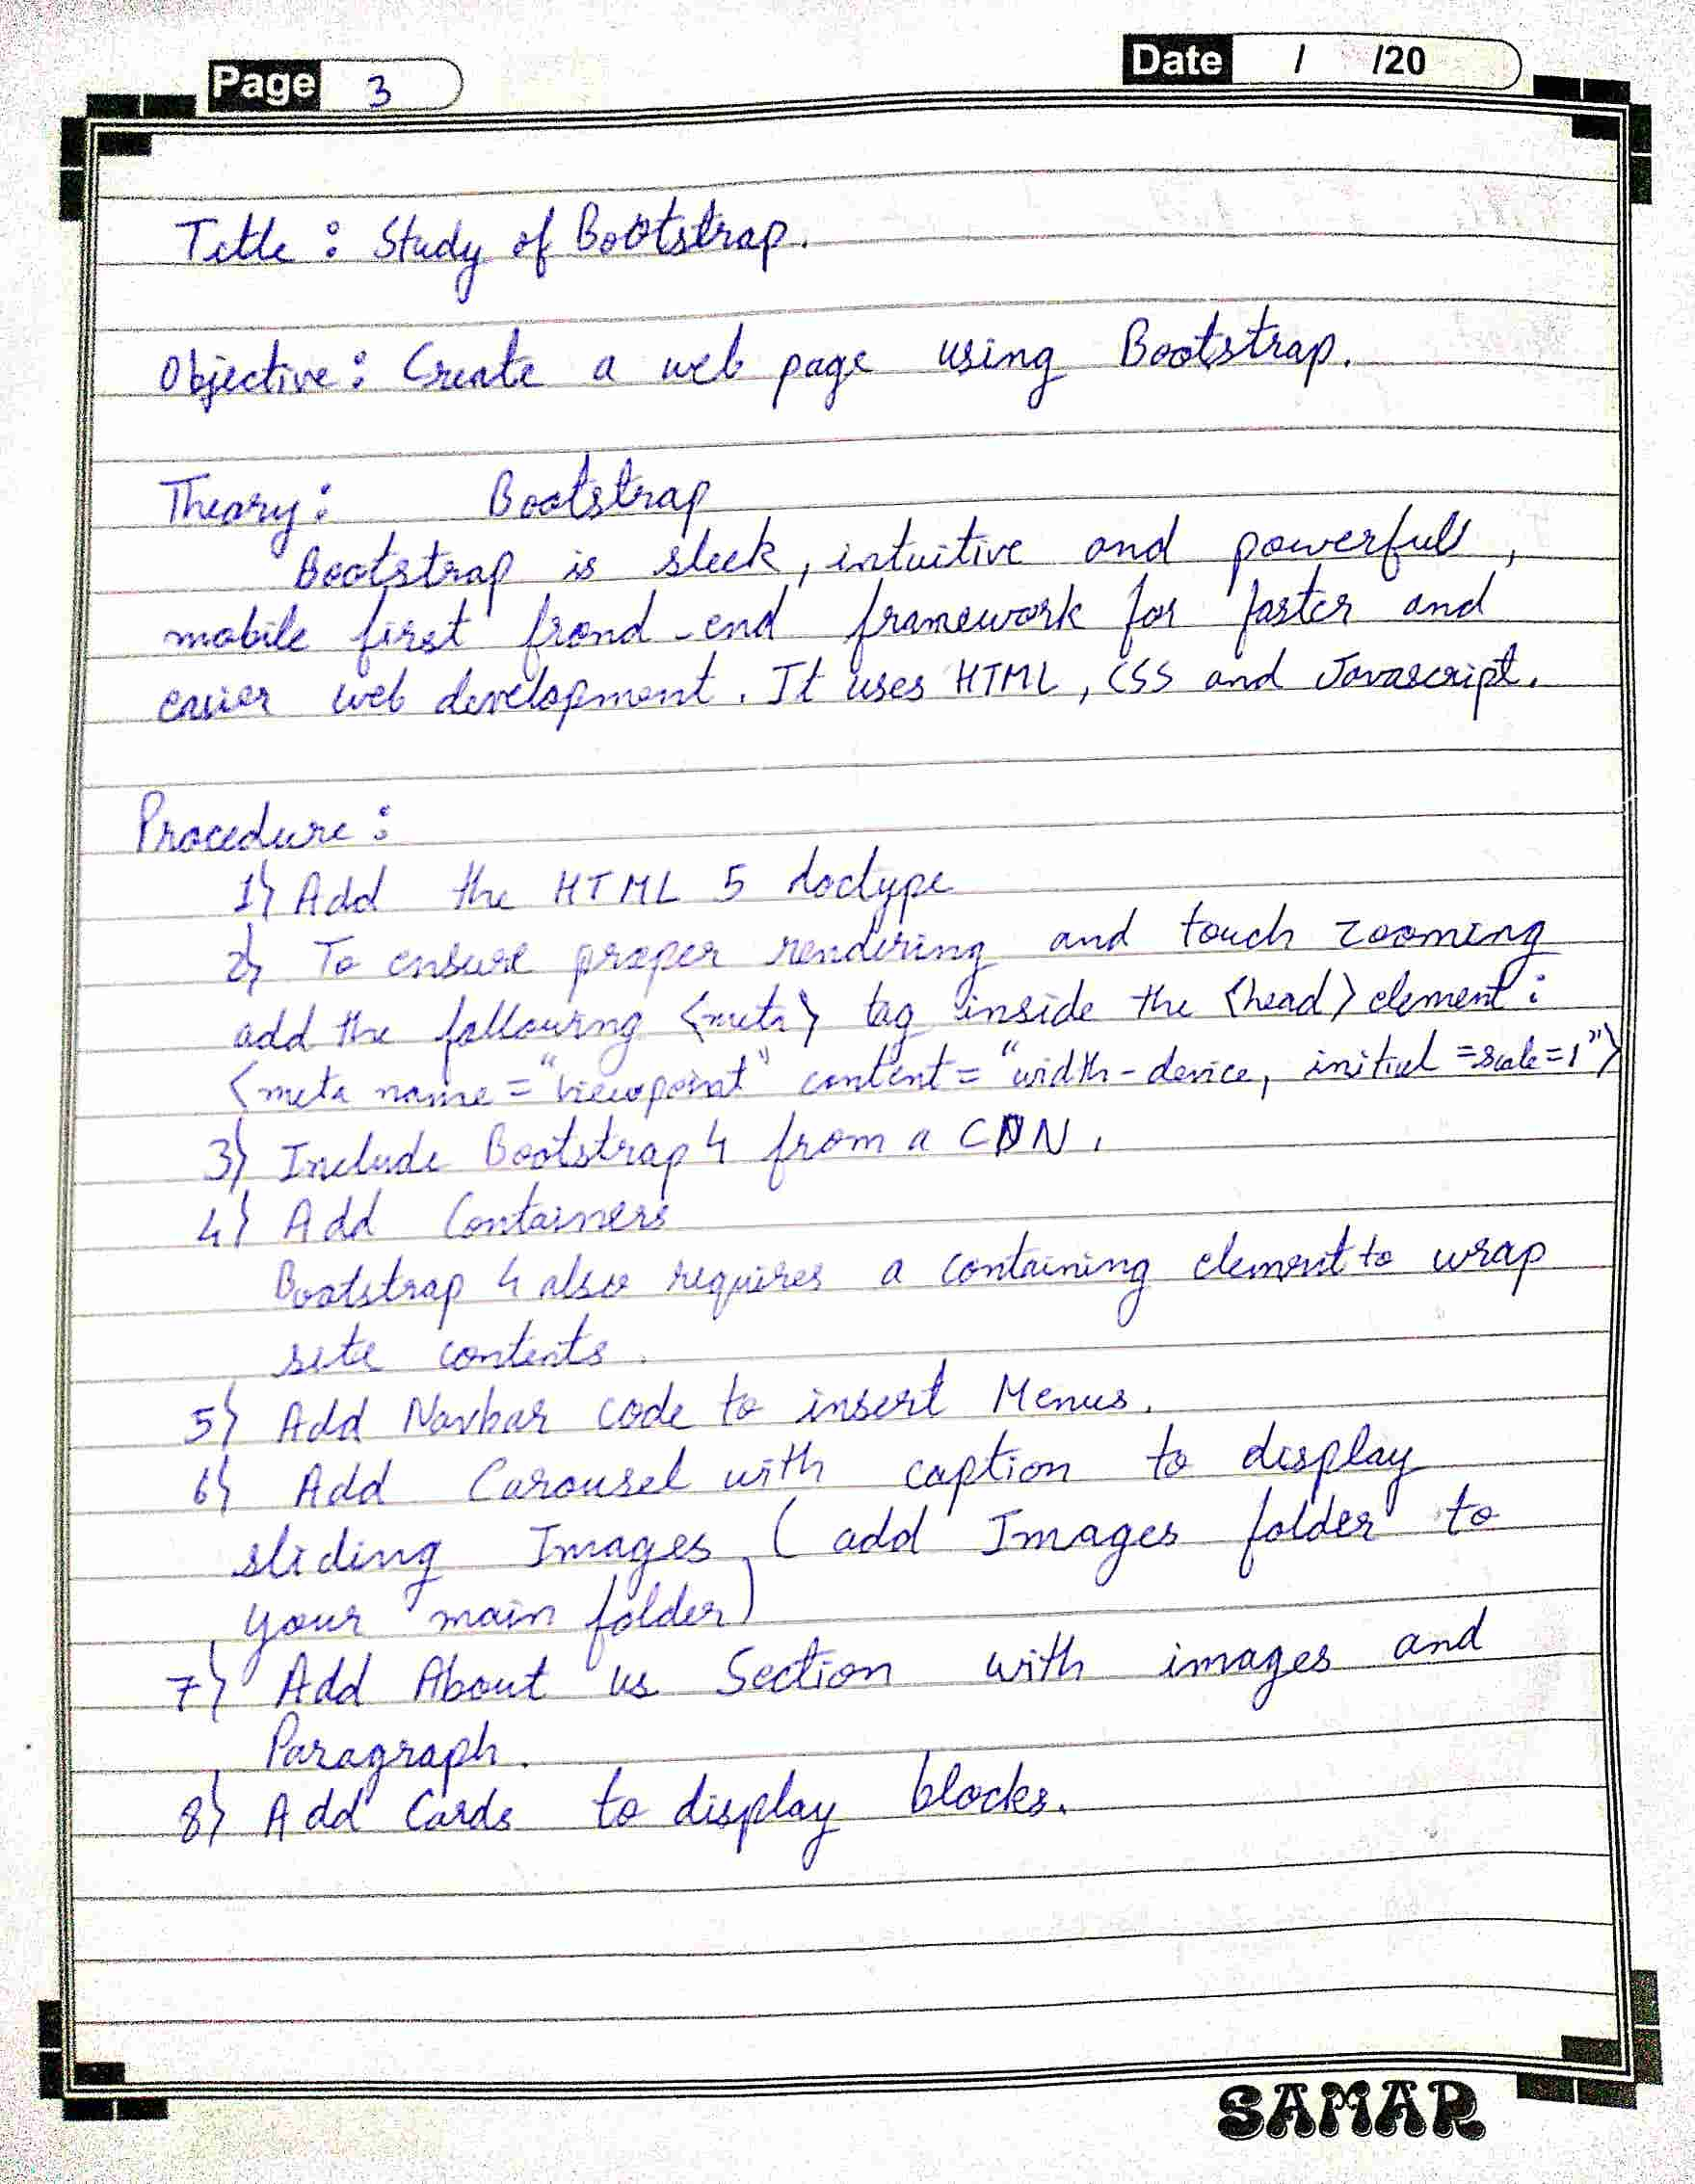 Page 3
Date / /20
Title : Study of Bootstrap.
Objective : Create a web page using Bootstrap.
Theory : Bootstrap
Bootstrap is sleek, intuitive and powerfull,
mobile first frond-end framework for faster and
easier web development. It uses HTML, CSS and Javascript.
Procedure :
1} Add the HTML 5 doctype
2} To ensure proper rendering and touch zooming
add the following <meta> tag inside the <head> element :
<meta name = "viewpoint" content = "width-device, initial =scale=1">
3} Include Bootstrap 4 from a CDN.
4} Add Containers
Bootstrap 4 also requires a containing element to wrap
site contents.
5} Add Navbar code to insert Menus.
6} Add Carousel with caption to display
sliding Images ( add Images folder to
your main folder)
7} Add About us Section with images and
Paragraph.
8} Add Cards to display blocks.
SAMAR